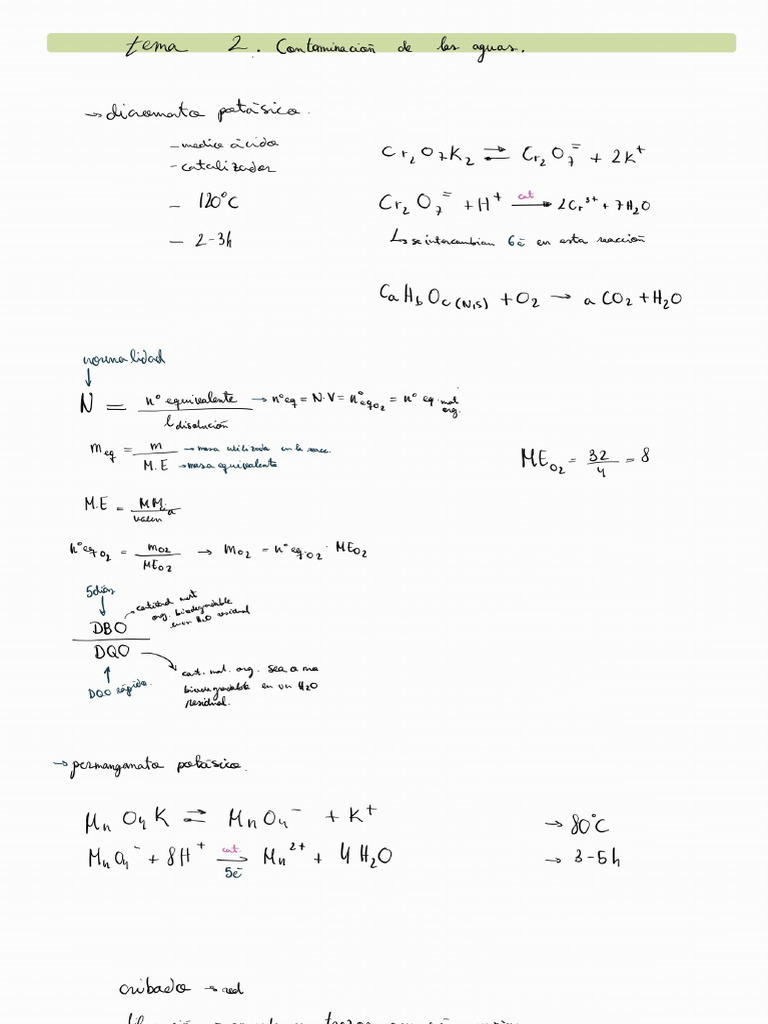 tema 2. Contaminación de las aguas.
→ dicromato potásico.
- medio ácido
- catalizador
- 120°C
- 2-3h
Cr₂O₇K₂ ⇌ Cr₂O₇⁼ + 2K⁺
Cr₂O₇⁼ + H⁺ —cat→ 2Cr³⁺ + 7H₂O
↳ se intercambian 6ē en esta reacción
CaHbOc(N,S) + O₂ → a CO₂ + H₂O
normalidad
↓
N = nº equivalente / l disolución → nºeq = N·V = nºeqO₂ = nº eq. mat org.
meq = m / M.E
→ masa utilizada en la reac.
→ masa equivalente
ME O₂ = 32/4 = 8
M.E = MM / valencia
nºeqO₂ = mO₂ / MEO₂ → mO₂ = nºeq.O₂ · MEO₂
5días
↓
DBO / DQO
→ cantidad mat. org. biodegradable en un H₂O residual
↑
DQO rápida.
→ cant. mat. org. sea o no biodegradable en un H₂O residual.
→ permanganato potásico.
MnO₄K ⇌ MnO₄⁻ + K⁺
MnO₄⁻ + 8H⁺ —cat. 5ē→ Mn²⁺ + 4H₂O
→ 80°C
→ 3-5h
cribado → red